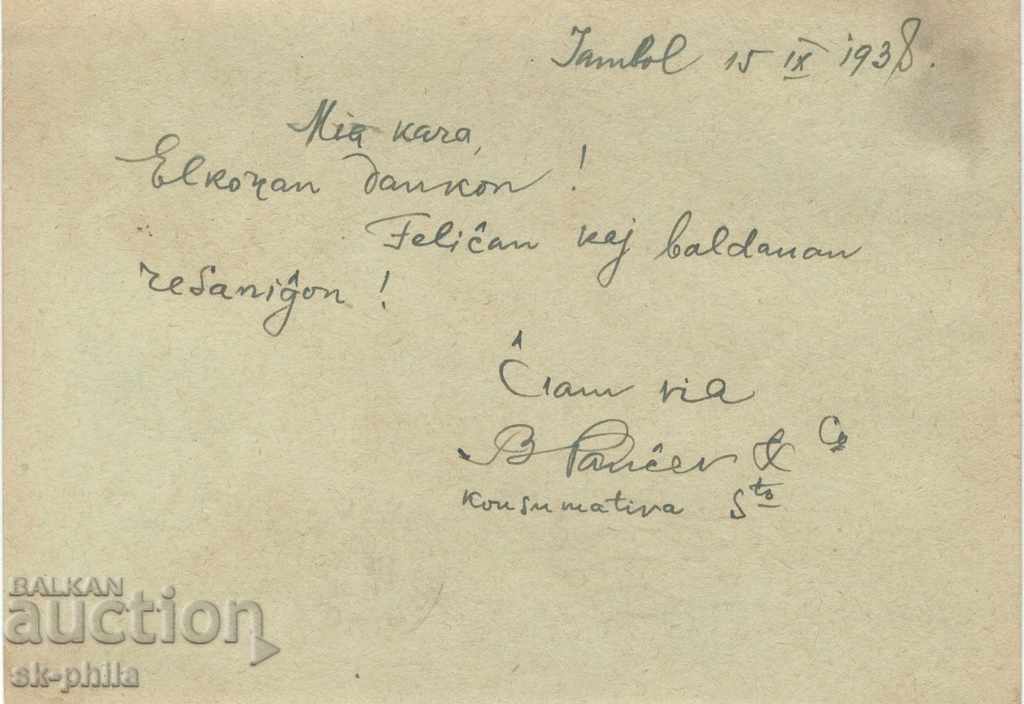 Jambol 15 IX 1938.
Mia kara,
Elkoran dankon!
Feliĉan kaj baldauan
resaniĝon!
Ĉiam via
B Pančev & Co
Konsumativa Sto
BALKAN
auction
sk-phila